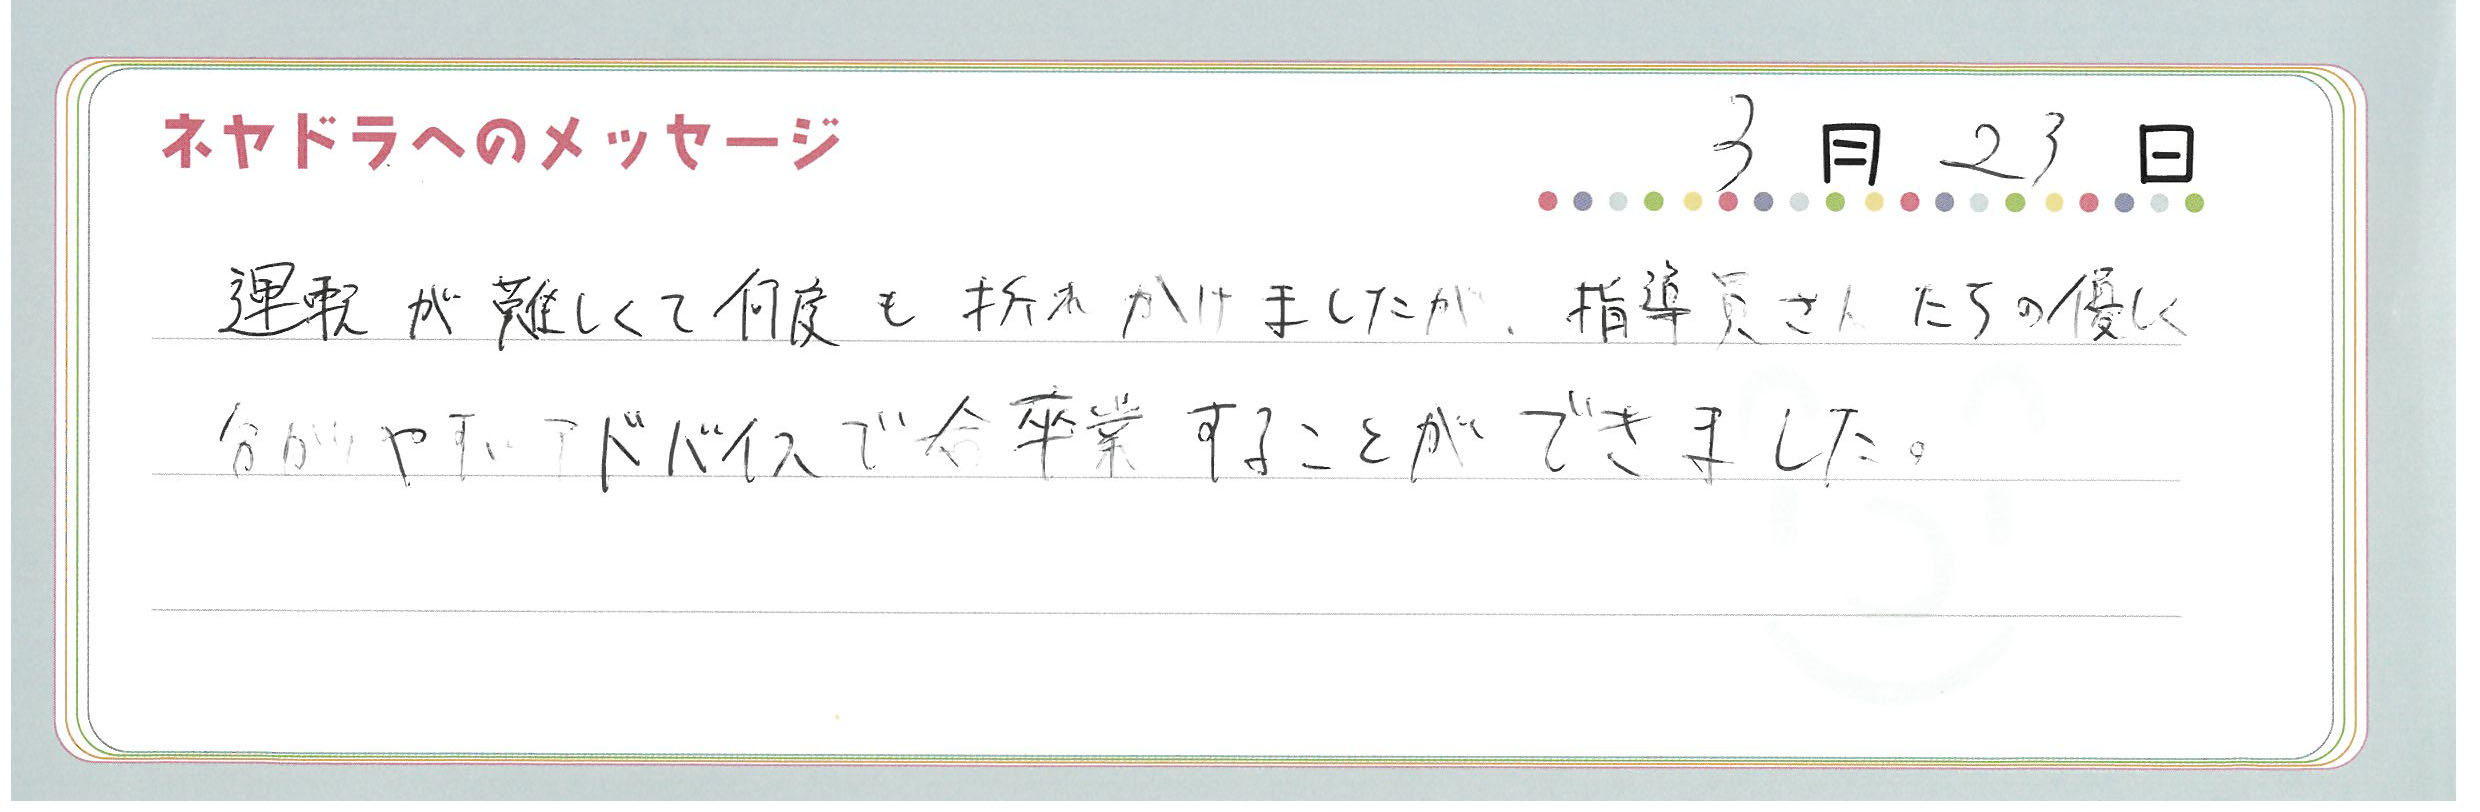 ネヤドラへのメッセージ
3月23日
運転が難しくて何度も折れかけましたが、指導員さんたちの優しく
分かりやすいアドバイスで今卒業することができました。